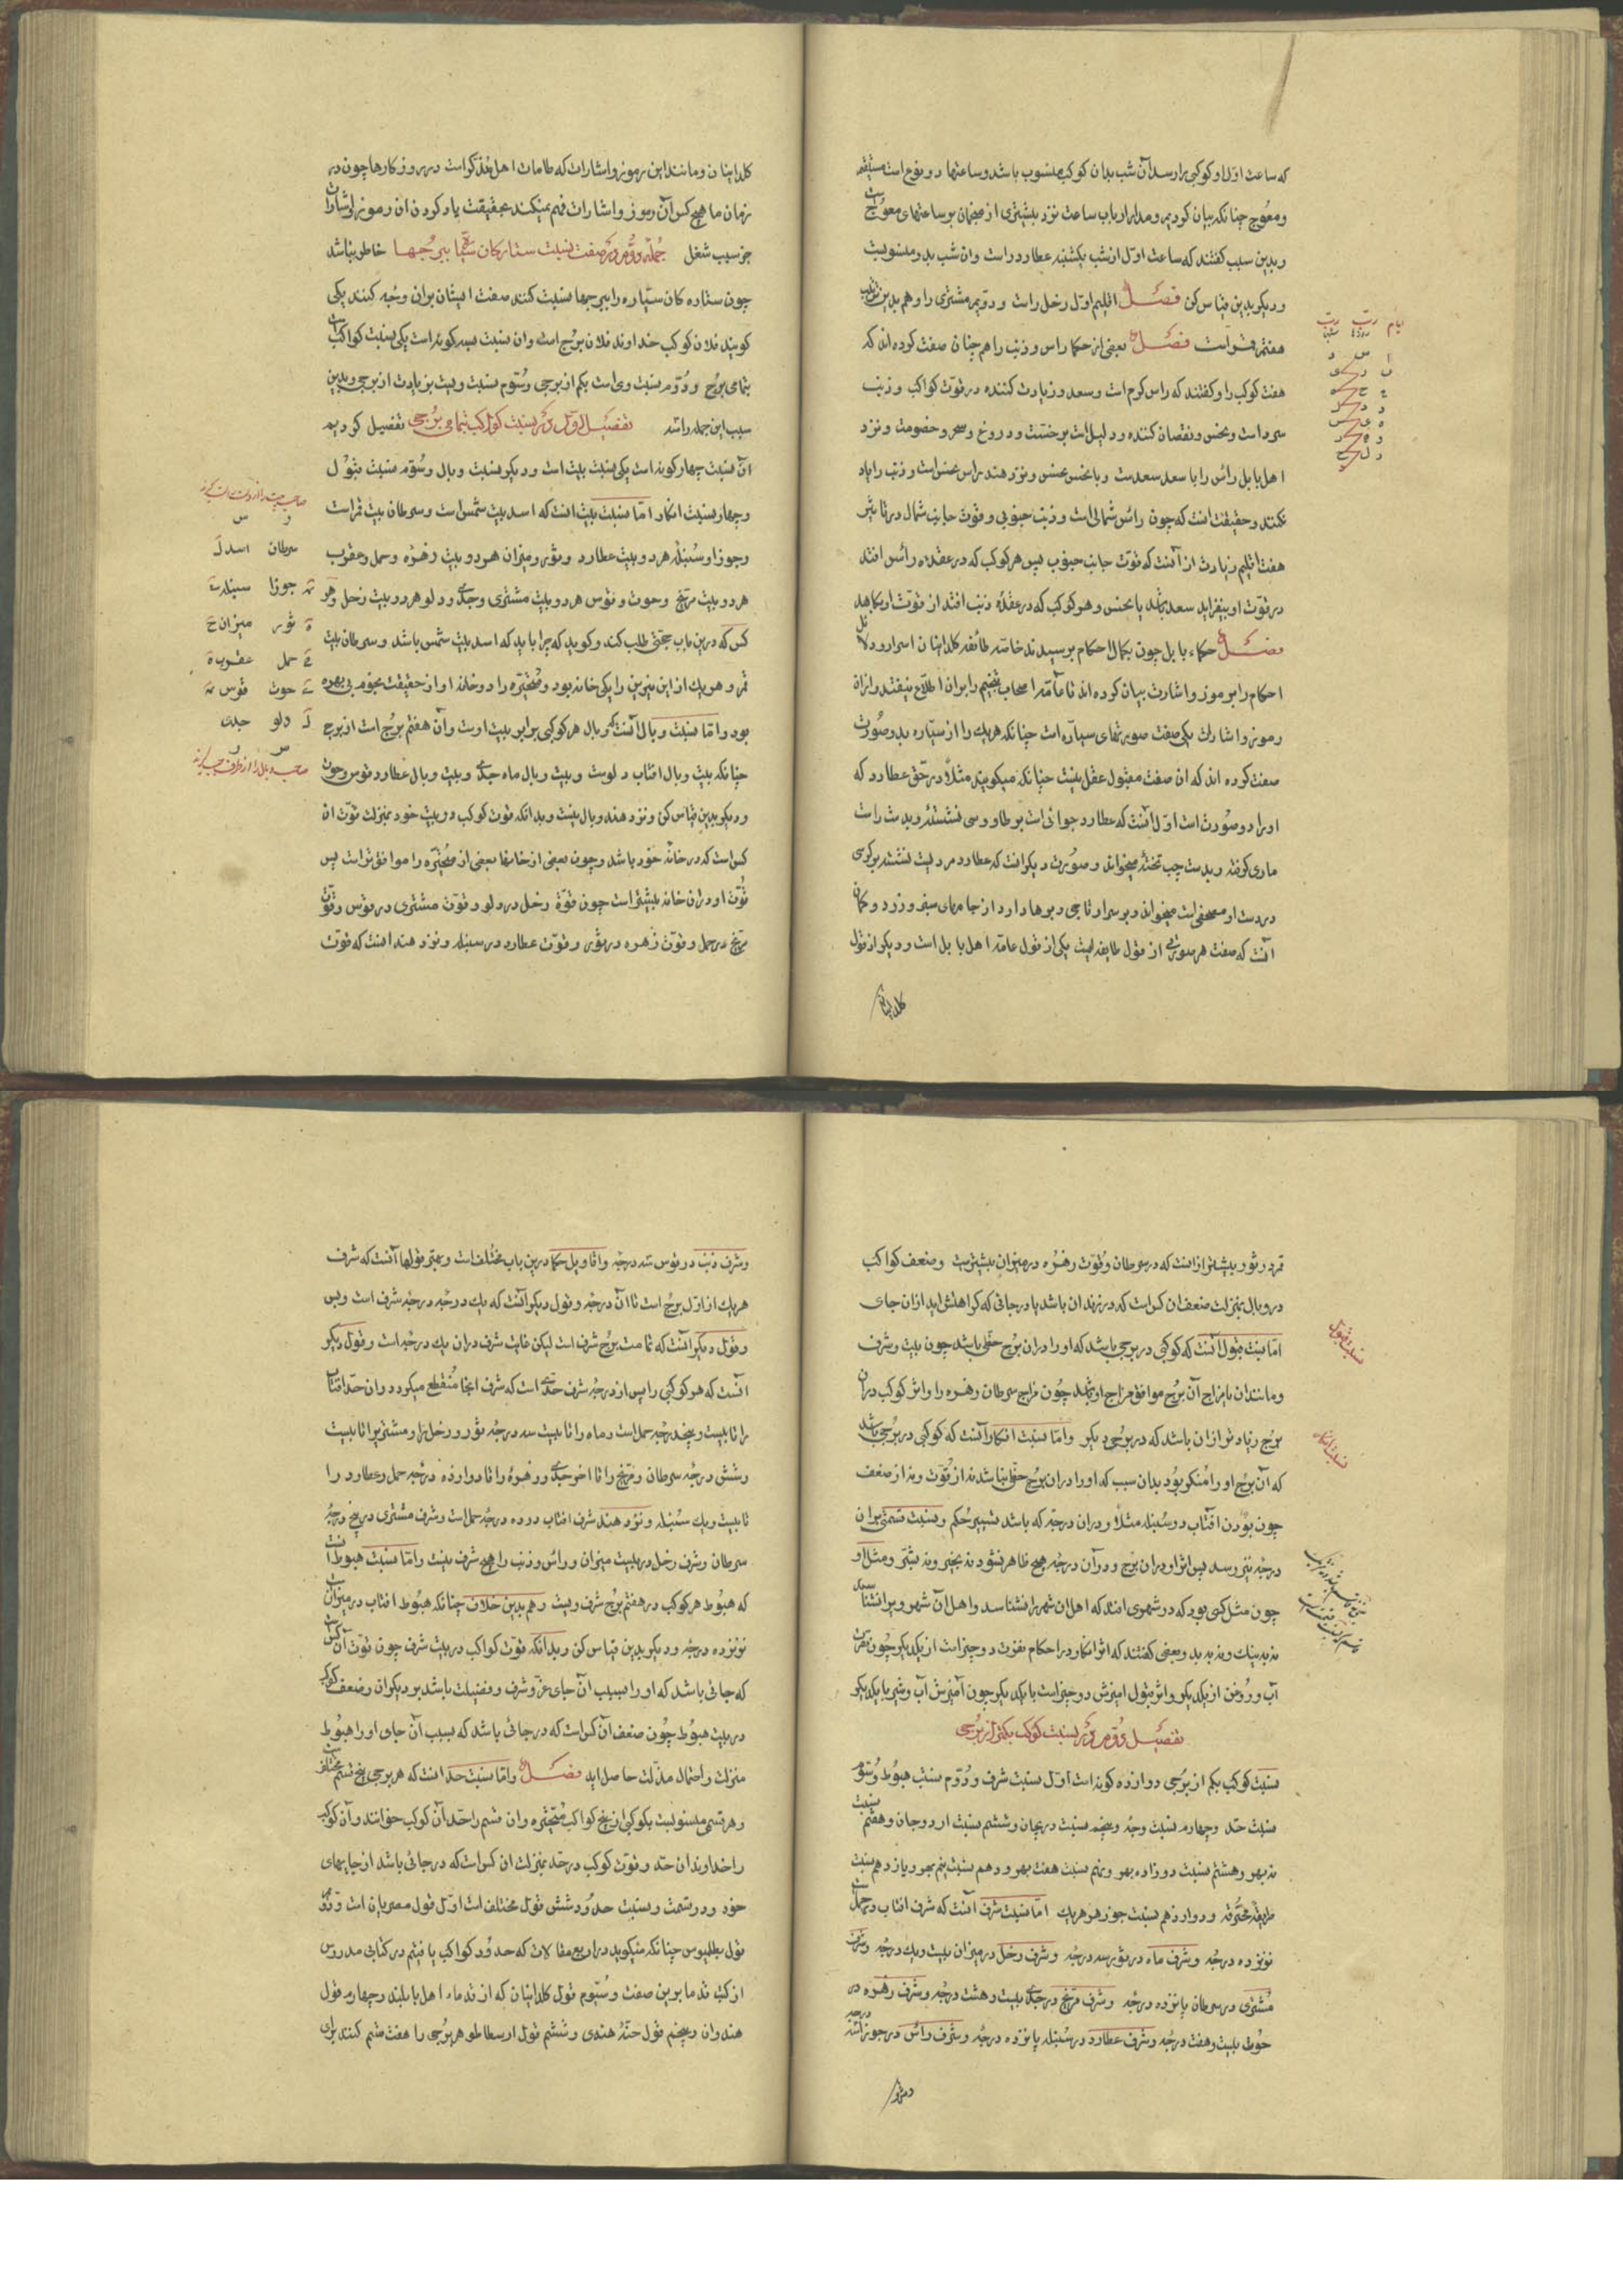 که ساعت اول او کوکبی را رسد آن شب بدان کوکب منسوب باشد و ساعتها دو نوع است مستقیم
و معوج چنانکه بیان کردیم و مدار ارباب ساعت نزد بیشتری از منجمان بر ساعتهای معوج است
و بدین سبب کفتند که ساعت اول از شب یکشنبه عطارد راست و ان شب بدو منسوبست
و دیکر بدین قیاس کن فصل اقلیم اول زحل راست و دویم مشتری را و هم بدین ترتیب
هفتم قمر راست فصل بعضی از حکما راس و ذنب را هم چنان صفت کرده اند که
هفت کوکب را و کفتند که راس کرم است و سعد و زیادت کننده در قوت کواکب و ذنب
سرد است و نحس و نقصان کننده و دلیل است بر خست و دروغ و سحر و خصومت و نزد
اهل بابل راس را با سعد سعدست و با نحس نحس و نزد هند راس نحس است و ذنب را یاد
نکنند و حقیقت انست که چون راس شمالی است و ذنب جنوبی و قوت جانب شمال در تاثیر
هفت اقلیم زیادت از آنست که قوت جانب جنوب پس هر کوکب که در عقده راس افتد
در قوت او بیفزاید سعد باشد یا نحس و هر کوکب که در عقده ذنب افتد از قوت او بکاهد
فصل حکماء بابل چون بکمال احکام برسیدند خاصه طائفه کلدانیان اسرار و دلایل
احکام را برموز و اشارت بیان کرده اند تا عامه اصحاب تنجیم را بران اطلاع نیفتد و ازان
رموز و اشارات یکی صفت صورتهای سیاره است چنانکه هریک را از سیاره بدو صورت
صفت کرده اند که ان صفت مقبول عقل نیست چنانکه میکویند مثلا در حق عطارد که
او را دو صورت است اول آنست که عطارد جوانی است بر طاوسی نشسته و بدست راست
ماری کرفته و بدست چپ تخته میخواند و صورت دیکر انست که عطارد مردیست نشسته بر کرسی
در دست او مصحفی است میخواند و بر سر او تاجی و برها دارد از جامهای سبز و زرد و کمان
آنست که صفت هر صورتی از قول طایفه ایست یکی از قول عامه اهل بابل است و دیکر از قول
کلدانیان
ایام رب رب
روزها شبها
کلدانیان و مانند این رموز و اشارات که طامات اهل هند کراست در هر روز کارها چون در
زمان ما هیچ کس آن رموز و اشارات فهم نمیکند بحقیقت یاد کردن ان رموز و اشارات
جز سبب شغل خاطر نباشد جمله دوم در صفت نسبت ستارکان سیاره ببرجها
چون ستاره کان سیاره را ببرجها نسبت کنند صفت ایشان بران وجه کنند یکی
کویند فلان کوکب خداوند فلان برج است وان نسبت بسه کونه است یکی نسبت کواکب است
بتمامی برج و دوم نسبت وی است بکم از برجی و سوم نسبت ویست بزیادت از برجی و بدین
سبب این جمله را شد تفصیل اول در نسبت کواکب بتمامی برجی تفصیل کردیم
آن نسبت چهار کونه است یکی نسبت بیت است و دیکر نسبت وبال و سوم نسبت قبول
و چهار نسبت انکار اما نسبت بیت انست که اسد بیت شمس است و سرطان بیت قمر است
و جوزا و سنبله هر دو بیت عطارد و ثور و میزان هر دو بیت زهره و حمل و عقرب
هر دو بیت مریخ و حوت و قوس هر دو بیت مشتری و جدی و دلو هر دو بیت زحل و هر
کس که درین باب حجتی طلب کند و کوید که چرا باید که اسد بیت شمس باشد و سرطان بیت
قمر و هریک از این نیرین را یکی خانه بود و متحیره را دو خانه او از حقیقت نجوم بی بهره
بود و اما نسبت وبال آنست که وبال هر کوکبی برابر بیت اوست و آن هفتم برج است از برج
چنانکه بیت وبال افتاب دلوست و بیت وبال ماه جدی و بیت وبال عطارد قوس و حوت
و دیکر بدین قیاس کن و نزد هند وبال نیست و بدانکه قوت کوکب در بیت خود بمنزلت قوت ان
کس است که در خانه خود باشد و چون بعضی از خانها بعضی از متحیره را موافق تر است پس
قوت او دران خانه بیشتر است چون قوة زحل در دلو و قوت مشتری در قوس و قوت
مریخ در حمل و قوت زهره در ثور و قوت عطارد در سنبله و نزد هند انست که قوت
سرطان اسد
جوزا سنبله
ثور میزان
حمل عقرب
حوت قوس
دلو جدی
قمر در ثور بیشتر از انست که در سرطان و قوت زهره در میزان بیشترست و ضعف کواکب
در وبال بمنزلت ضعف ان کس است که در زندان باشد یا در جائی که کراهتش اید از ان جای
اما نسبت قبول آنست که کوکبی در برجی باشد که او را دران برج حظی باشد چون بیت و شرف
و مانند ان یا مزاج آن برج موافق مزاج او باشد چون مزاج سرطان زهره را و اثر کوکب دران
برج زیادت تر ازان باشد که در برجی دیکر و اما نسبت انکار آنست که کوکبی در برجی باشد
که آن برج او را منکر بود بدان سبب که او را دران برج حظی نباشد نه از قوت و نه از ضعف
چون بودن افتاب در سنبله مثلا و دران درجه که باشد تسییر حکم و نسبت قسمتی بران
درجه نیز رسد پس اثر او دران برج و در آن درجه هیچ ظاهر نشود نه بخیر و نه بشر و مثل او
چون مثل کسی بود که در شهری افتد که اهل ان شهر را نشناسد و اهل آن شهر ویرا نشناسند
نه به نیک و نه به بد و بعضی کفتند که اثر انکار در احکام نفرت دو چیز است از یکدیکر چون نفرت
آب و روغن از یکدیکر و اثر قبول امیزش دو چیز است با یکدیکر چون آمیزش آب و شیر با یکدیکر
تفصیل دوم در نسبت کوکب بکمتر از برجی
نسبت کوکب بکم از برجی دوازده کونه است اول نسبت شرف و دوم نسبت هبوط و سوم
نسبت حد و چهارم نسبت وجه و پنجم نسبت دریجان و ششم نسبت اردوجان و هفتم نسبت
نه بهر و هشتم نسبت دوازده بهر و نهم نسبت هفت بهر و دهم نسبت نیم بهر و یازدهم نسبت
طریقه محترقه و دوازدهم نسبت جوزهر هریک اما نسبت شرف آنست که شرف افتاب در حمل است
نوزده درجه و شرف ماه در ثور سه درجه و شرف زحل در میزان بیست و یک درجه و شرف
مشتری در سرطان پانزده درجه و شرف مریخ در جدی بیست و هشت درجه و شرف زهره در
حوت بیست و هفت درجه و شرف عطارد در سنبله پانزده درجه و شرف راس در جوزا سه درجه
نسبت قبول
نسبت انکار
و شرف ذنب در قوس سه درجه و اقاویل حکما درین باب مختلف است و بهتر قولها آنست که شرف
هریک از اول برج است تا آن درجه و قول دیکر آنست که یک درجه درجه شرف است و بس
و قول دیکر آنست که تمامت برج شرف است لیکن غایت شرف دران یک درجه است و قول دیکر
آنست که هر کوکبی را پس از درجه شرف حدی است که شرف انجا منقطع میکردد وان حد افتاب
را تا بیست و پنجد رجه حمل است و ماه را تا بیست سه درجه ثور و زحل را و مشتریرا تا بیست
و شش درجه سرطان و مریخ را تا اخر جدی و زهره را تا دوازده درجه حمل و عطارد را
تا بیست و یک سنبله و نزد هند شرف افتاب در ده درجه حمل است و شرف مشتری در پنج درجه
سرطان و شرف زحل در بیست میزان و راس و ذنب را هیچ شرف نیست و اما نسبت هبوط آنست
که هبوط هر کوکب در هفتم برج شرف ویست و هم بدین خلاف چنانکه هبوط افتاب در میزان است
نوزده درجه و دیکر بدین قیاس کن و بدانکه قوت کواکب در بیت شرف چون قوت آن کس است
که جائی باشد که او را بسبب آن جای عز و شرف و فضیلت باشد بر دیکران و ضعف کوکب
در بیت هبوط چون ضعف آن کس است که در جائی باشد که بسبب آن جای او را هبوط
منزلت و احتمال مذلت حاصل اید فصل و اما نسبت حد انست که هر برجی پنج قسم مختلف است
و هر قسمی منسوبست بکوکبی از پنج کواکب متحیره وان قسم را حد آن کوکب خوانند و آن کوکب
را خداوند ان حد و قوت کوکب در حد بمنزلت ان کس است که در جائی باشد از جایهای
خود و در قسمت و نسبت حدود شش قول مختلف است اول قول مصریان است و دوم
قول بطلیوس چنانکه میکوید در اربع مقالات که حدود کواکب یافتم در کتابی مدروس
از کتب قدما برین صفت و سوم قول کلدانیان که از قدماء اهل بابلند و چهارم قول
هندوان و پنجم قول حنه هندی و ششم قول ارسطاطو هر برجی را هفت قسم کنند برای